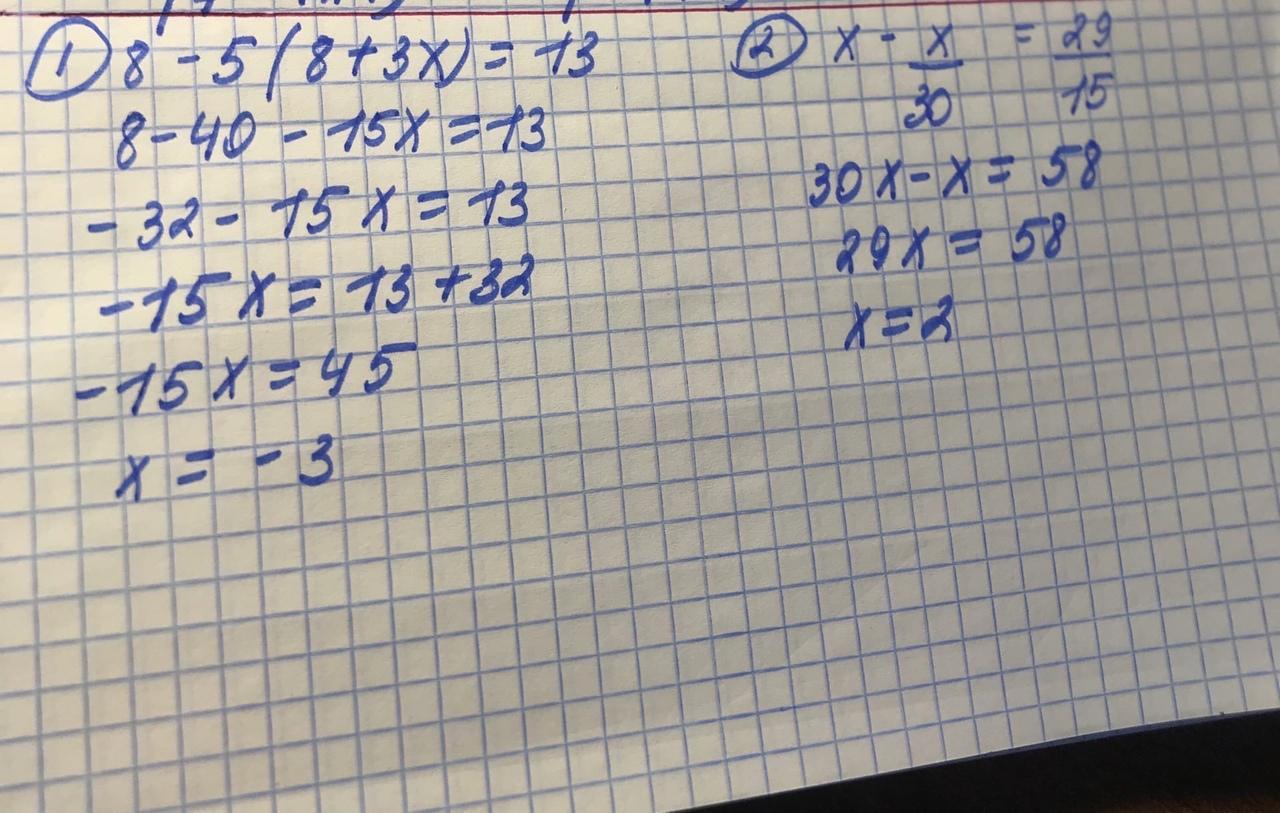 ① 8 - 5 (8 + 3x) = 13
8 - 40 - 15x = 13
- 32 - 15x = 13
- 15x = 13 + 32
- 15x = 45
x = - 3
② x - x/30 = 29/15
30x - x = 58
29x = 58
x = 2